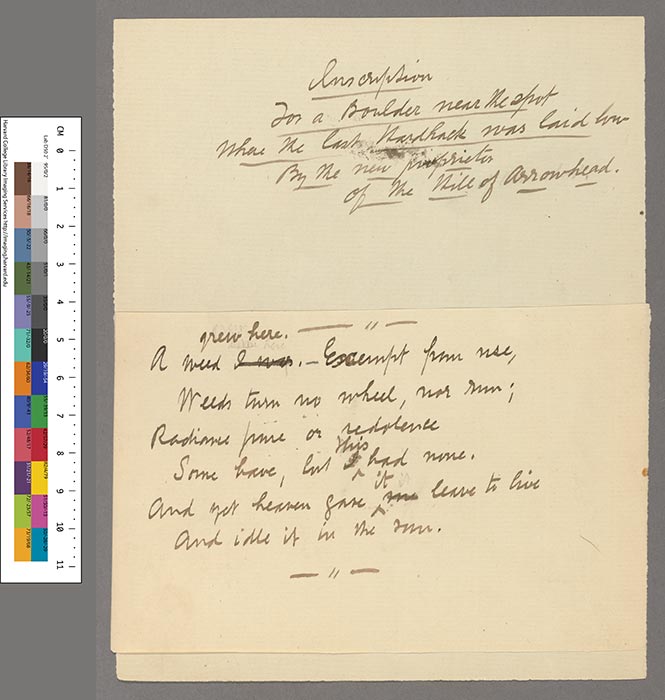 Inscription
For a Boulder near the spot
Where the last Hardhack was laid low
By the new proprietor
of the Hill of Arrowhead.
grew here.
A weed I was. — Exempt from use,
Weeds turn no wheel, nor run;
Radiance pure or redolence
this
Some have, but I had none.
it
And yet heaven gave me leave to live
And idle it in the sun.
Harvard College Library Imaging Services http://imaging.harvard.edu
CM 0 1 2 3 4 5 6 7 8 9 10 11